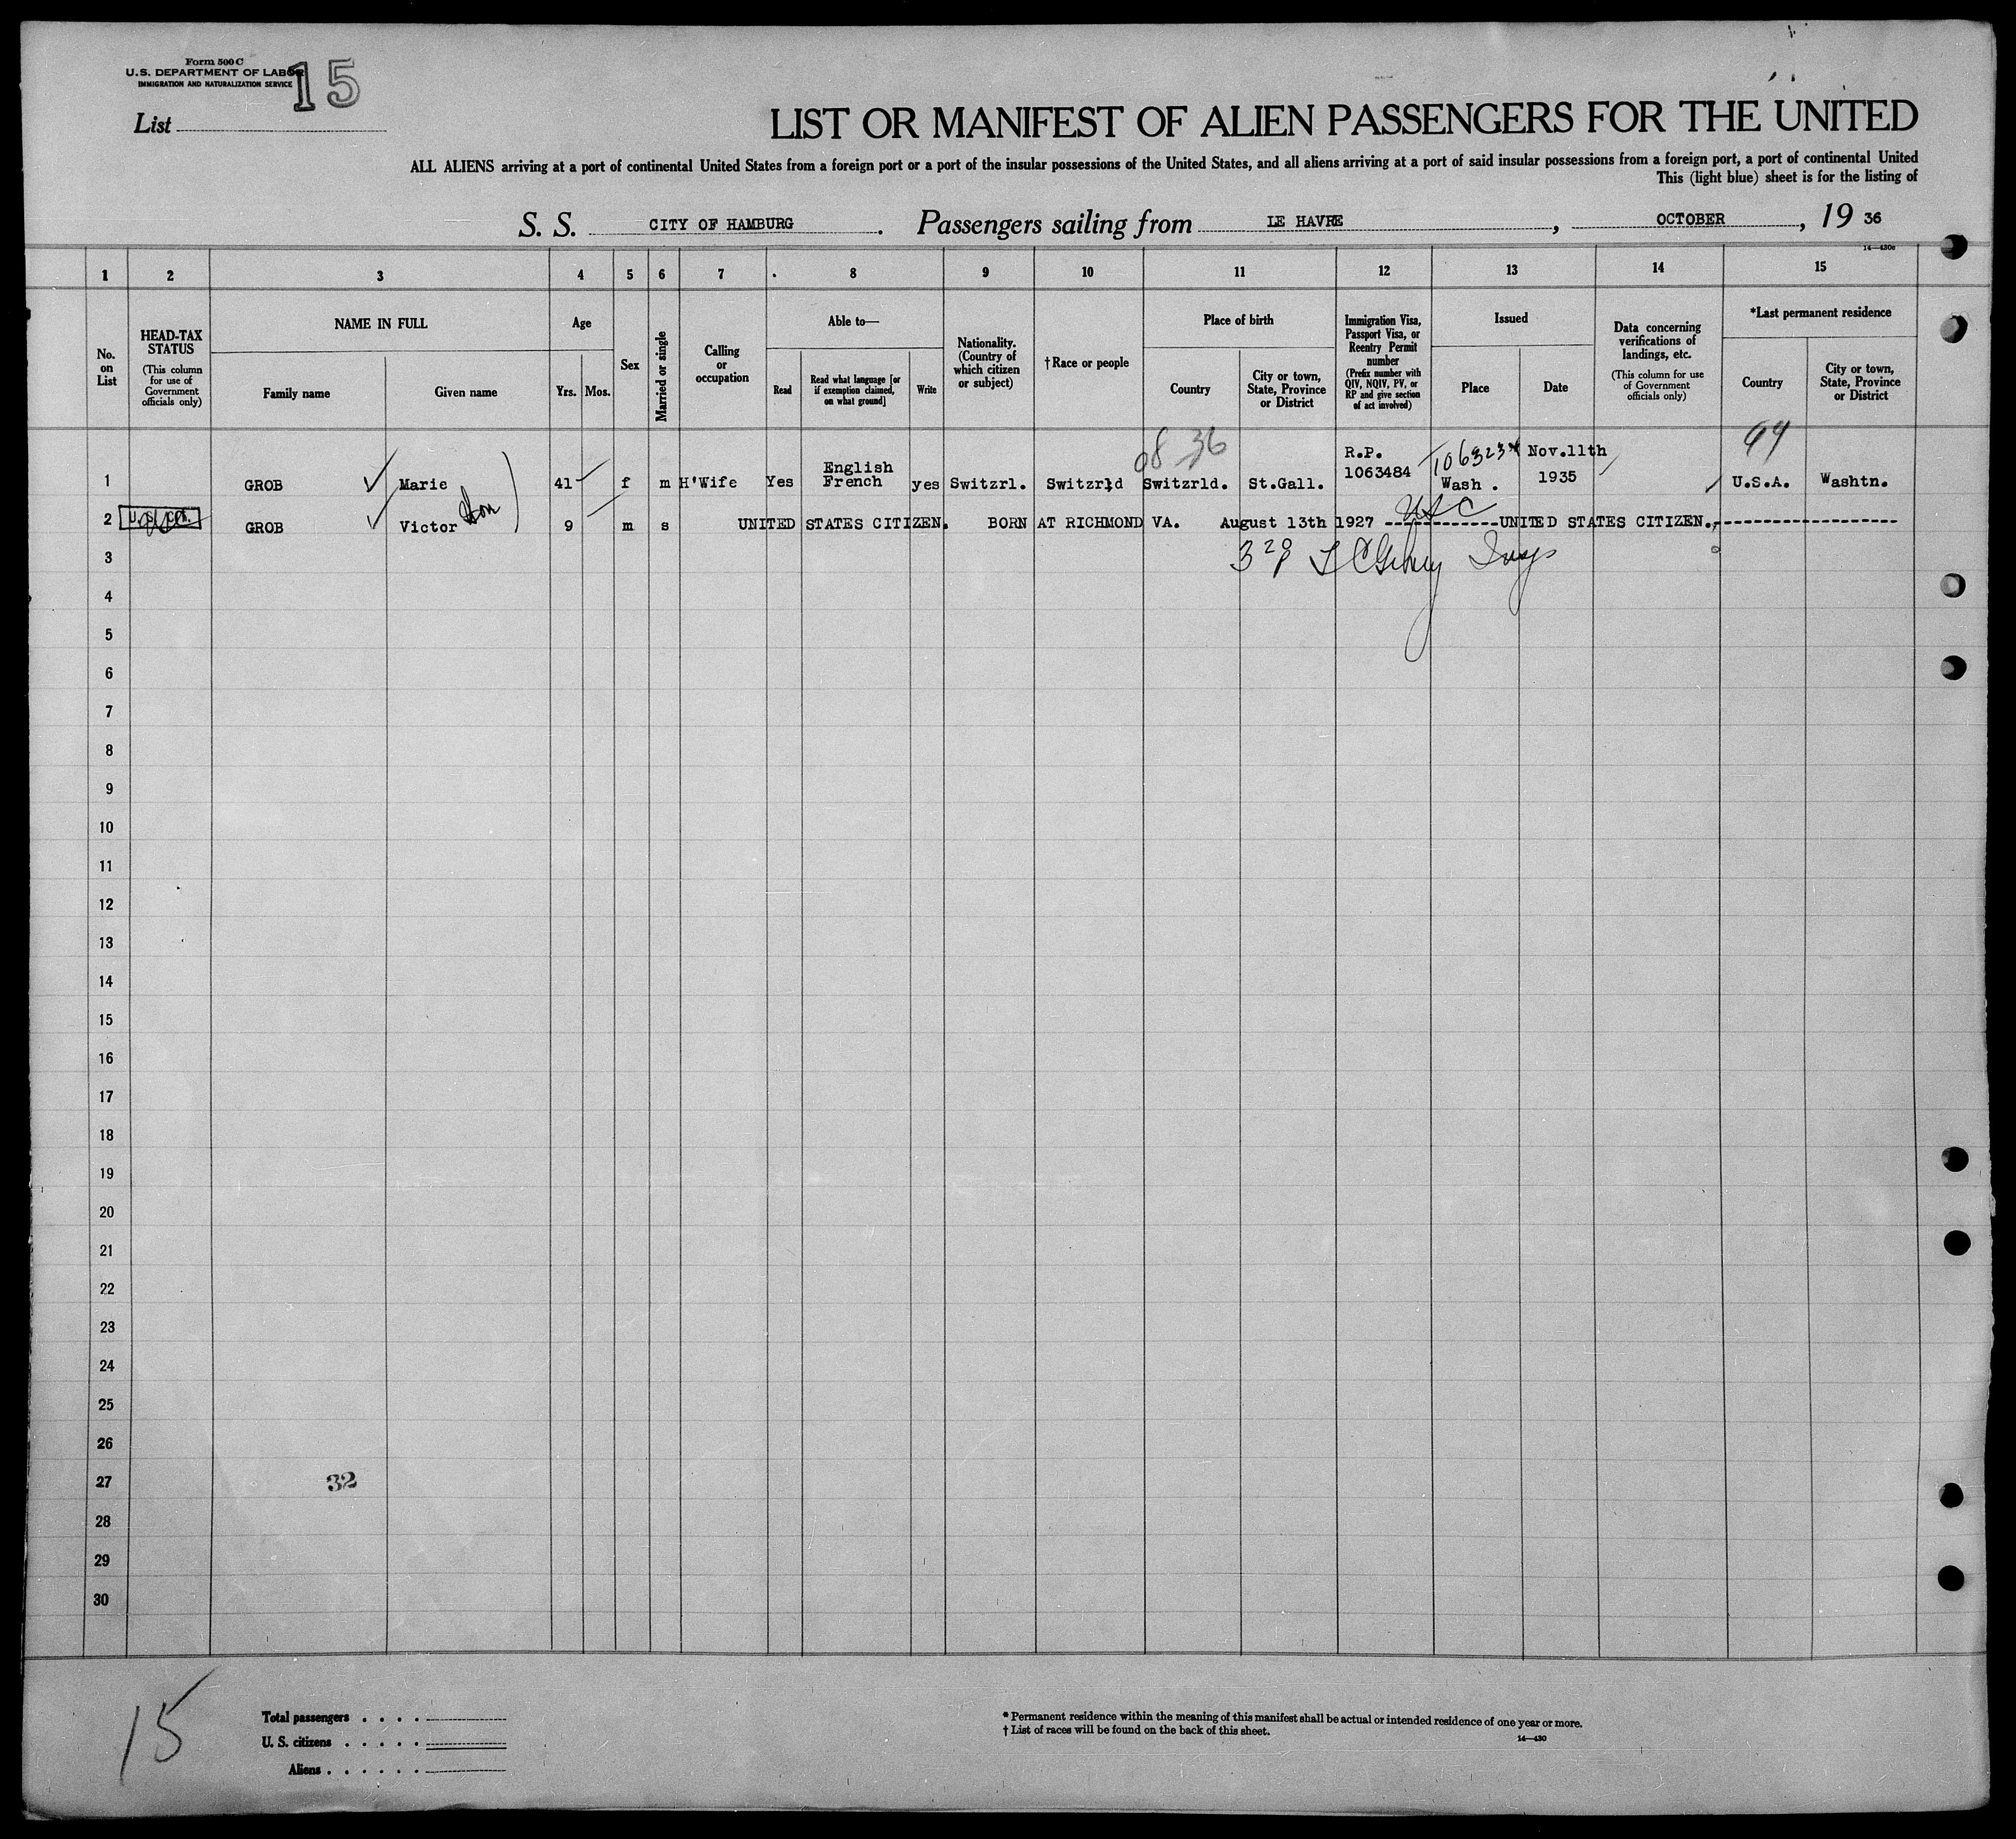 Form 500 C
U.S. DEPARTMENT OF LABOR
IMMIGRATION AND NATURALIZATION SERVICE
15
List
LIST OR MANIFEST OF ALIEN PASSENGERS FOR THE UNITED
ALL ALIENS arriving at a port of continental United States from a foreign port or a port of the insular possessions of the United States, and all aliens arriving at a port of said insular possessions from a foreign port, a port of continental United
This (light blue) sheet is for the listing of
S. S. CITY OF HAMBURG. Passengers sailing from LE HAVRE, OCTOBER, 19 36
14—430c
1 2 3 4 5 6 7 8 9 10 11 12 13 14 15
No. on List
HEAD-TAX STATUS
(This column for use of Government officials only)
NAME IN FULL
Family name Given name
Age
Yrs. Mos.
Sex
Married or single
Calling or occupation
Able to—
Read Read what language [or if exemption claimed, on what ground] Write
Nationality. (Country of which citizen or subject)
† Race or people
Place of birth
Country City or town, State, Province or District
Immigration Visa, Passport Visa, or Reentry Permit number
(Prefix number with QIV, NQIV, PV, or RP and give section of act involved)
Issued
Place Date
Data concerning verifications of landings, etc.
(This column for use of Government officials only)
*Last permanent residence
Country City or town, State, Province or District
36 99
1 GROB Marie 41 f m H'Wife Yes English French yes Switzrl. Switzrld Switzrld. St.Gall. R.P. 1063484 Wash . Nov.11th 1935 U.S.A. Washtn.
2 GROB Victor Son 9 m s UNITED STATES CITIZEN. BORN AT RICHMOND VA. August 13th 1927 ------------UNITED STATES CITIZEN.-------------------
USC
3
4
5
6
7
8
9
10
11
12
13
14
15
16
17
18
19
20
21
22
23
24
25
26
27 32
28
29
30
15
Total passengers . . . .
U. S. citizens . . . . .
Aliens . . . . . .
* Permanent residence within the meaning of this manifest shall be actual or intended residence of one year or more.
† List of races will be found on the back of this sheet.
14—430